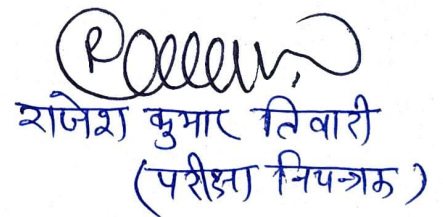 राजेश कुमार तिवारी
(परीक्षा नियन्त्रक)